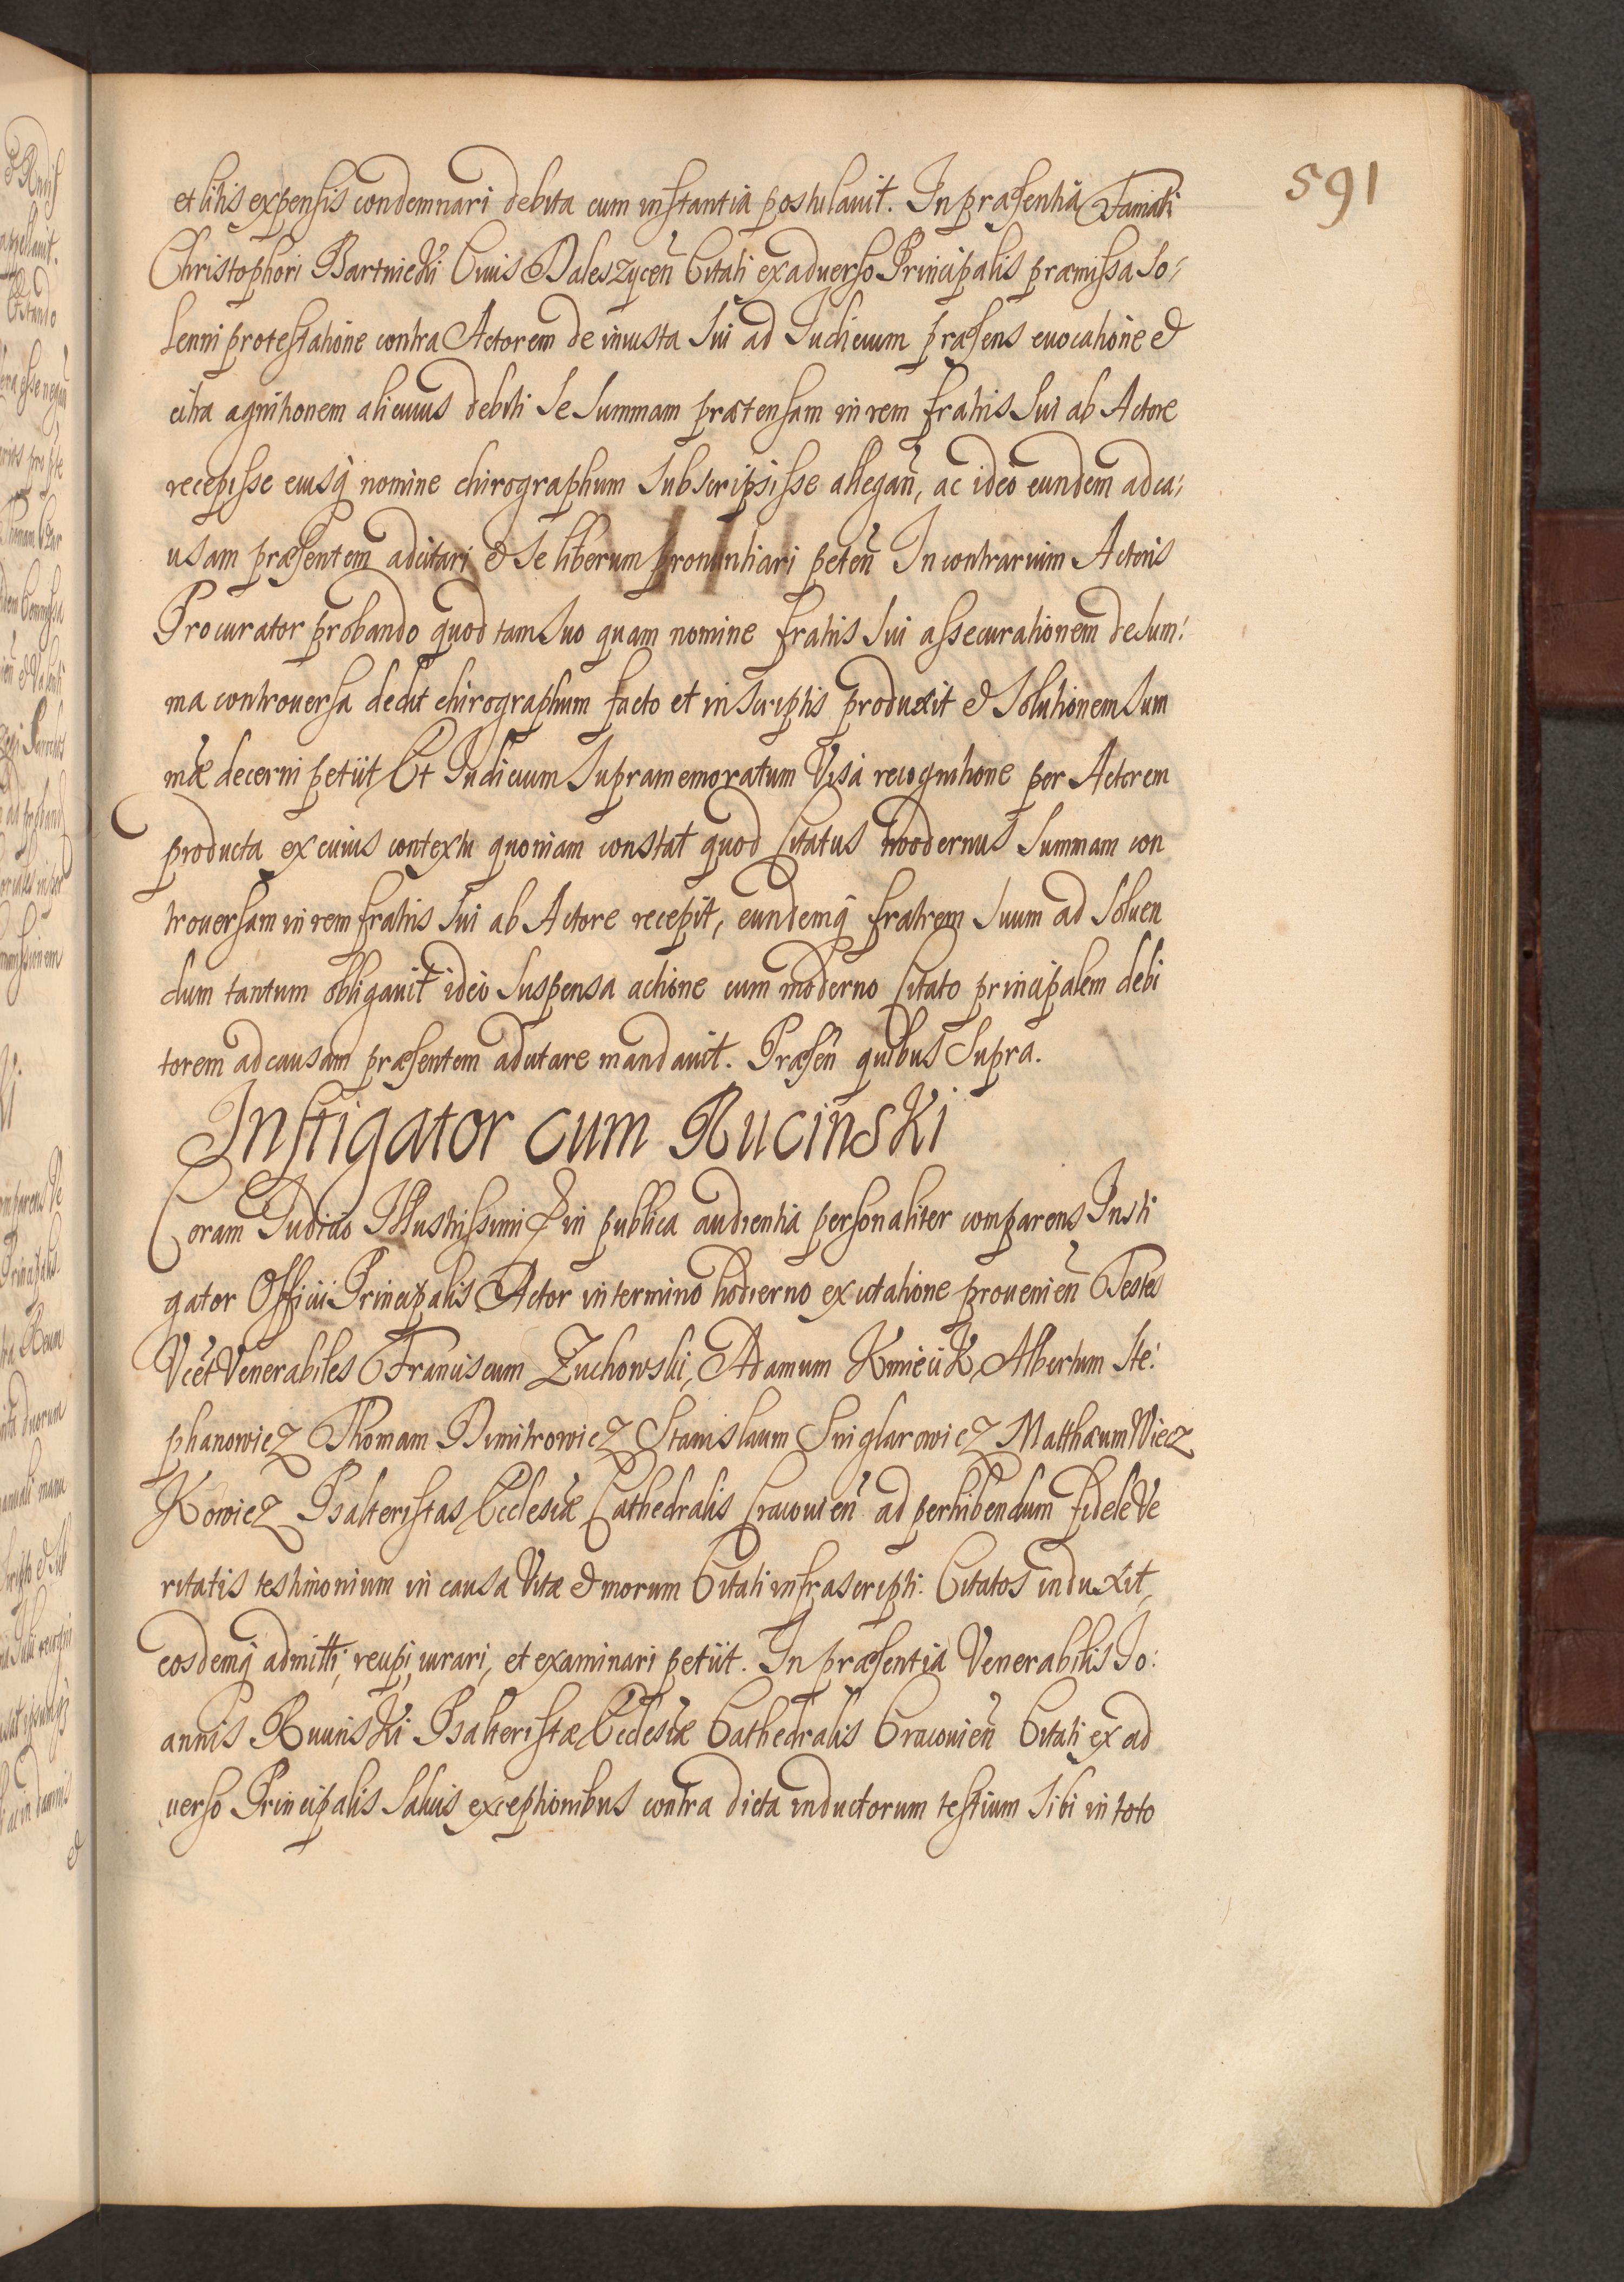 591
et litis expensis condemnari debita cum instantia postulauit. In præsentia Famati
Christophori Bartnicki Ciuis Daleszycen̄ Citati ex aduerso Principalis præmissa so:
lenni protestatione contra Actorem de iniusta sui ad Iudicium præsens euocatione &
citra agnitionem alicuius debiti se summam prætensam in rem fratris sui ab Actore
recepisse eiusq̃ nomine chirographum subscripsisse allegan̄, ac ideò eundem ad ca:
usam præsentem adcitari & se liberum pronuntiari peten̄ In contrarium Actoris
Procurator probando quod tam suo quam nomine fratris sui assecurationem de sum:
ma controuersa dedit chirographum facto et in scriptis produxit & solutionem sum
mæ decerni petiit Et Iudicium supramemoratum Visa recognitione per Actorem
producta ex cuius contextu quoniam constat quod Citatus modernus summam con
trouersam in rem fratris sui ab Actore recepit, eundemq̃ fratrem suum ad soluen
dum tantum obligauit ideò suspensa actione cum moderno Citato principalem debi
torem ad causam præsentem adcitare mandauit. Præsen̄ quibus supra.
Instigator cum Rucinski
Coram Iudicio Illustrissimi & in publica audientia personaliter comparens Insti
gator Officii Principalis Actor in termino hodierno ex citatione prouenien̄ Testes
Vcet Venerabiles Franciscum Zuchowski, Adamum Kmiecik, Albertum Ste:
phanowicz Thomam Dimitrowicz Stanislaum Sniglarowicz Matthæum Wiecz
Kowicz Psalteristas Ecclesiæ Cathedralis Cracouien̄ ad perhibendum fidele Ve
ritatis testimonium in causa Vitæ & morum Citati infrascripti Citatos induxit,
eosdemq̃ admitti, recipi, iurari, et examinari petiit. In præsentia Venerabilis Io:
annis Rucinski Psalteristæ Ecclesiæ Cathedralis Cracouien̄ Citati ex ad
uerso Principalis saluis exceptionibus contra dicta inductorum testium sibi in toto